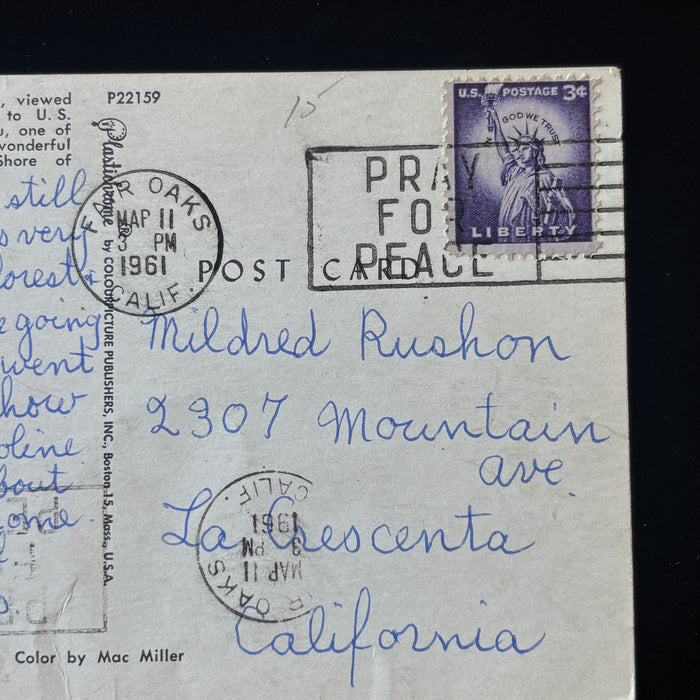 , viewed
to U.S.
u, one of
wonderful
Shore of
P22159
15
still
s very
forest &
e going
went
how
oline
bout
ome
Plastichrome ® by COLOURPICTURE PUBLISHERS, INC., Boston 15, Mass., U.S.A.
FAIR OAKS
MAR 11
3 PM
1961
CALIF.
PRAY
FOR
PEACE
U.S. POSTAGE 3¢
IN GOD WE TRUST
LIBERTY
POST CARD
Mildred Rushon
2307 Mountain
ave.
La Crescenta
California
CALIF.
1961
3 PM
MAR 11
R OAKS
Color by Mac Miller